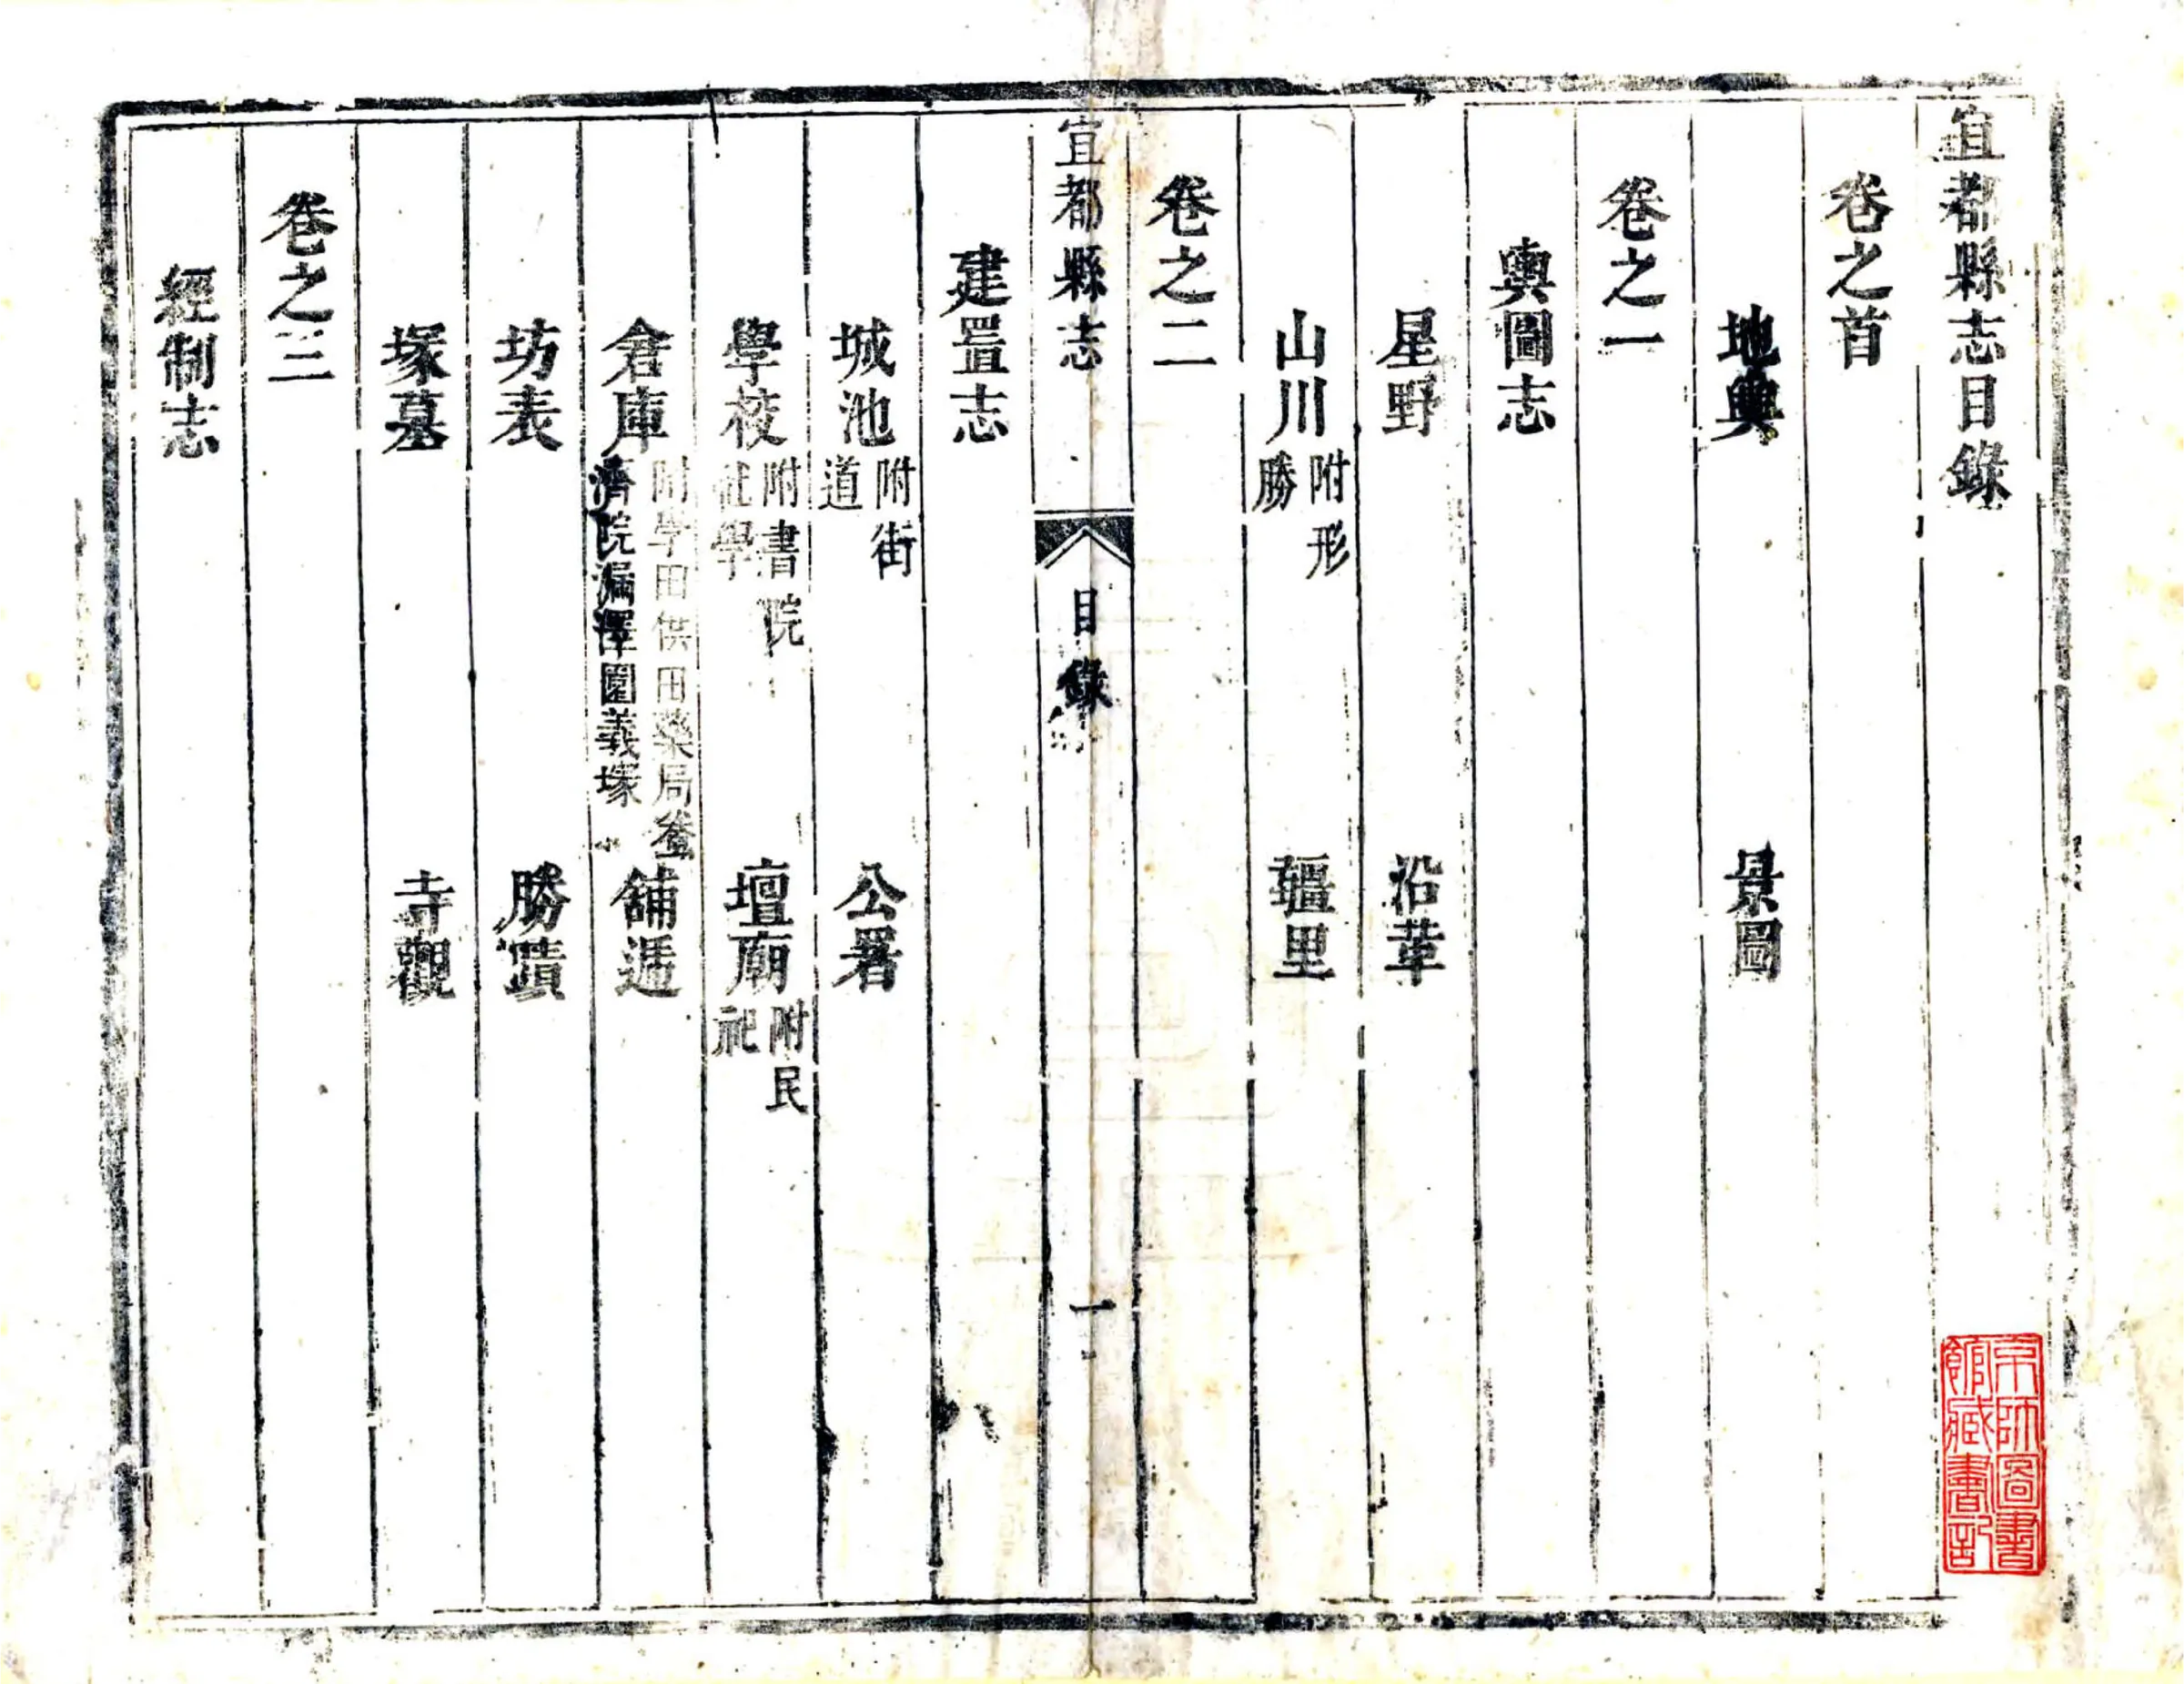 宜都縣志目錄
卷之首
地輿 景圖
卷之一
輿圖志
星野 沿革
山川附形勝 疆里
卷之二
宜都縣志 目錄 一
建置志
城池附街道 公署
學校附書院社學 壇廟附民祀
倉庫附學田供田藥局養濟院漏澤園義塚 舖遞
坊表 勝蹟
塚墓 寺觀
卷之三
經制志
京師圖書館藏書記